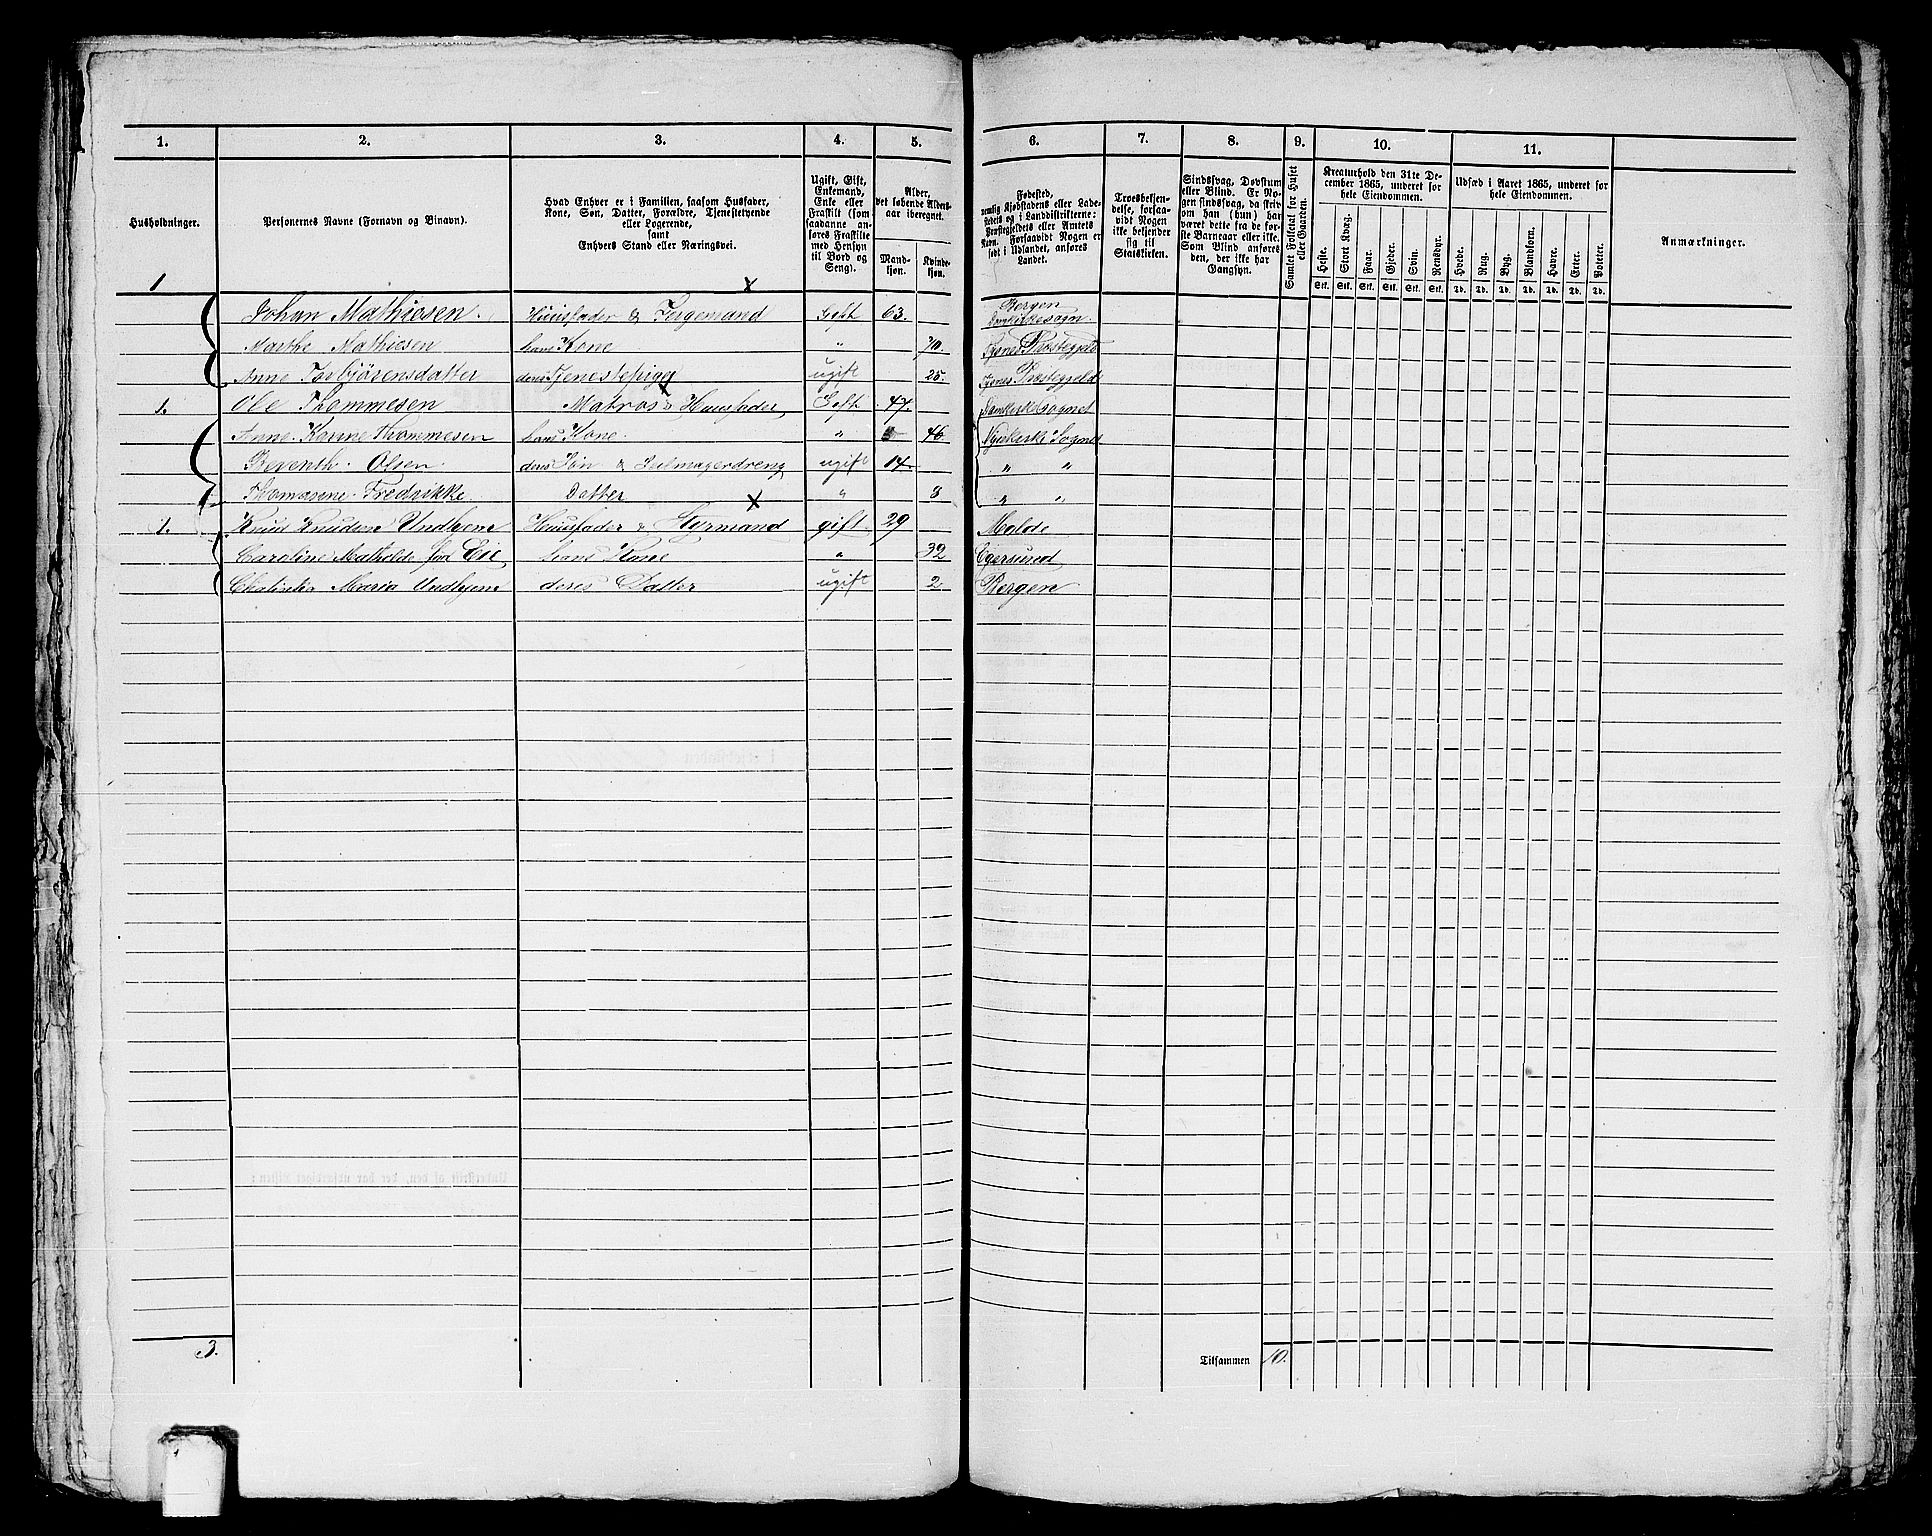 1. 2. 3. 4. 5. 6. 7. 8. 9. 10. 11.
Husholdninger.
Personernes Navne (Fornavn og Binavn).
Hvad Enhver er i Familien, saasom Husfader,
Kone, Søn, Datter, Forældre, Tjenestetyende
eller Logerende,
samt
Enhvers Stand eller Næringsvei.
Ugift, Gift,
Enkemand,
Enke eller
Fraskilt (som
saadanne an-
føres Fraskilte
med Hensyn
til Bord og
Seng).
Alder,
det løbende Alders-
aar iberegnet.
Mand-
kjøn.
Kvinde-
kjøn.
Fødested,
nemlig Kjøbstadens eller Lade-
stedets og i Landdistrikterne:
Præstegjeldets eller Amtets
Navn. Forsaavidt Nogen er
født i Udlandet, anføres
Landet.
Troesbekjen-
delse, forsaa-
vidt Nogen
ikke bekjender
sig til
Statskirken.
Sindssvag, Døvstum
eller Blind. Er No-
gen sindssvag, da skriv
om han (hun) har
været dette fra de før-
ste Barneaar eller ikke.
Som Blind anføres
den, der ikke har
Gangsyn.
Samlet Folketal for Huset
eller Gaarden.
Kreaturhold den 31te De-
cember 1865, underet for
hele Eiendommen.
Heste. Stort Kvæg. Faar. Gjeder. Svin. Rensdyr.
Stk. Stk. Stk. Stk. Stk. Stk.
Udsæd i Aaret 1865, underet for
hele Eiendommen.
Hvede. Rug. Byg. Blandkorn. Havre. Erter. Poteter.
Td. Td. Td. Td. Td. Td. Td.
Anmærkninger.
1 x
Johan Mathiesen Huusfader & Færgemand Gift 63. Bergen Domkirkesogn.
Marthe Mathiesen hans Kone " 70. Fjones Præstegjeld
Anne Torbjörensdatter deres Tjenestepige ugift 25. Fjones Præstegjeld
1. Ole Thommesen Matros & Huusfader Gift 47. Domkirke Sognet
x
Anne Karine Thommesen hans Kone. " 46 Nykirke Sognet
Berenth. Olsen deres Sön & Seilmagerdreng ugift 14. " "
Thomasine Fredrikke Datter " 8 " "
x
1. Knud Knudsen Undhjem Huusfader & Styrmand gift 29 Molde
Caroline Mathilde föd Eie hans Kone " 32 Egersund
Maria Undhjem deres Datter ugift 2 Bergen
3. Tilsammen 10.